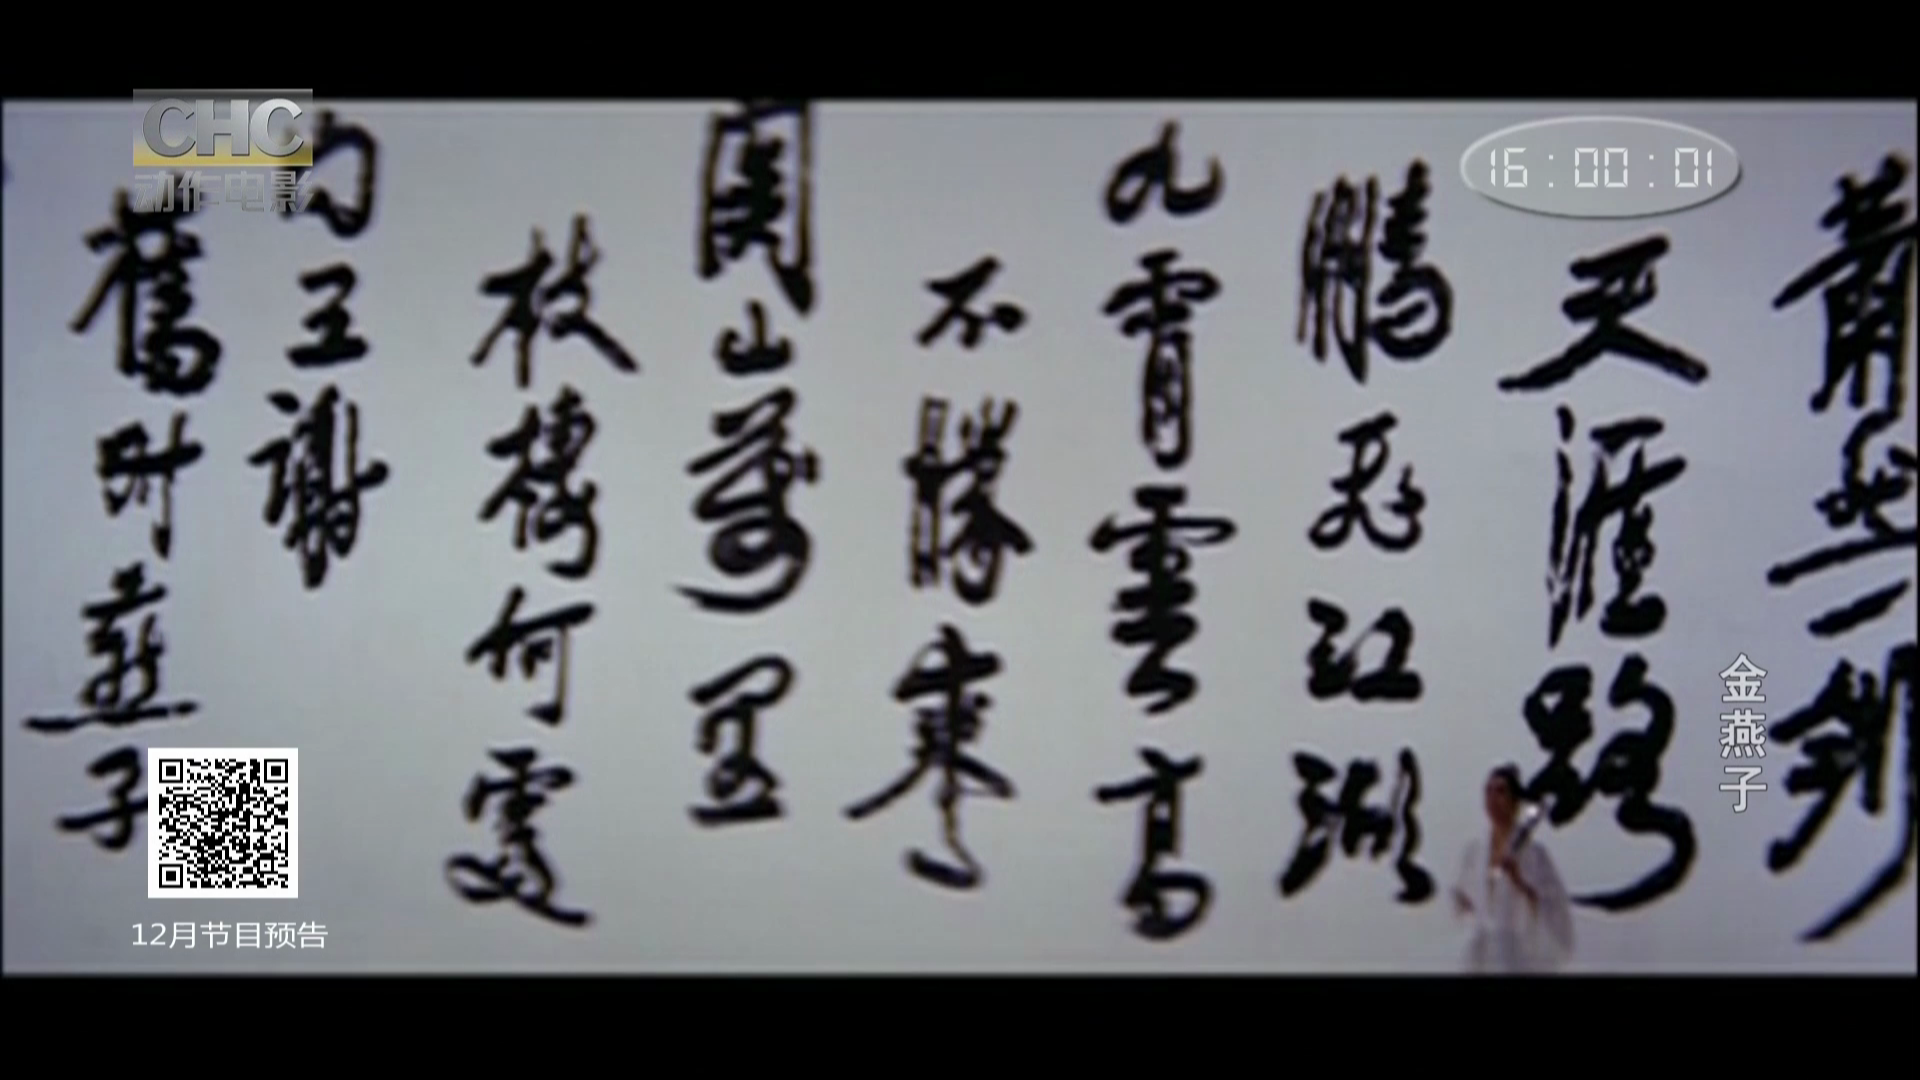 CHC
动作电影
16:00:01
蕭然一劍
天涯路
鵬飛江湖
九霄雲高
不勝寒
關山萬里
枝棲何處
向王謝
舊時燕子
金燕子
12月节目预告